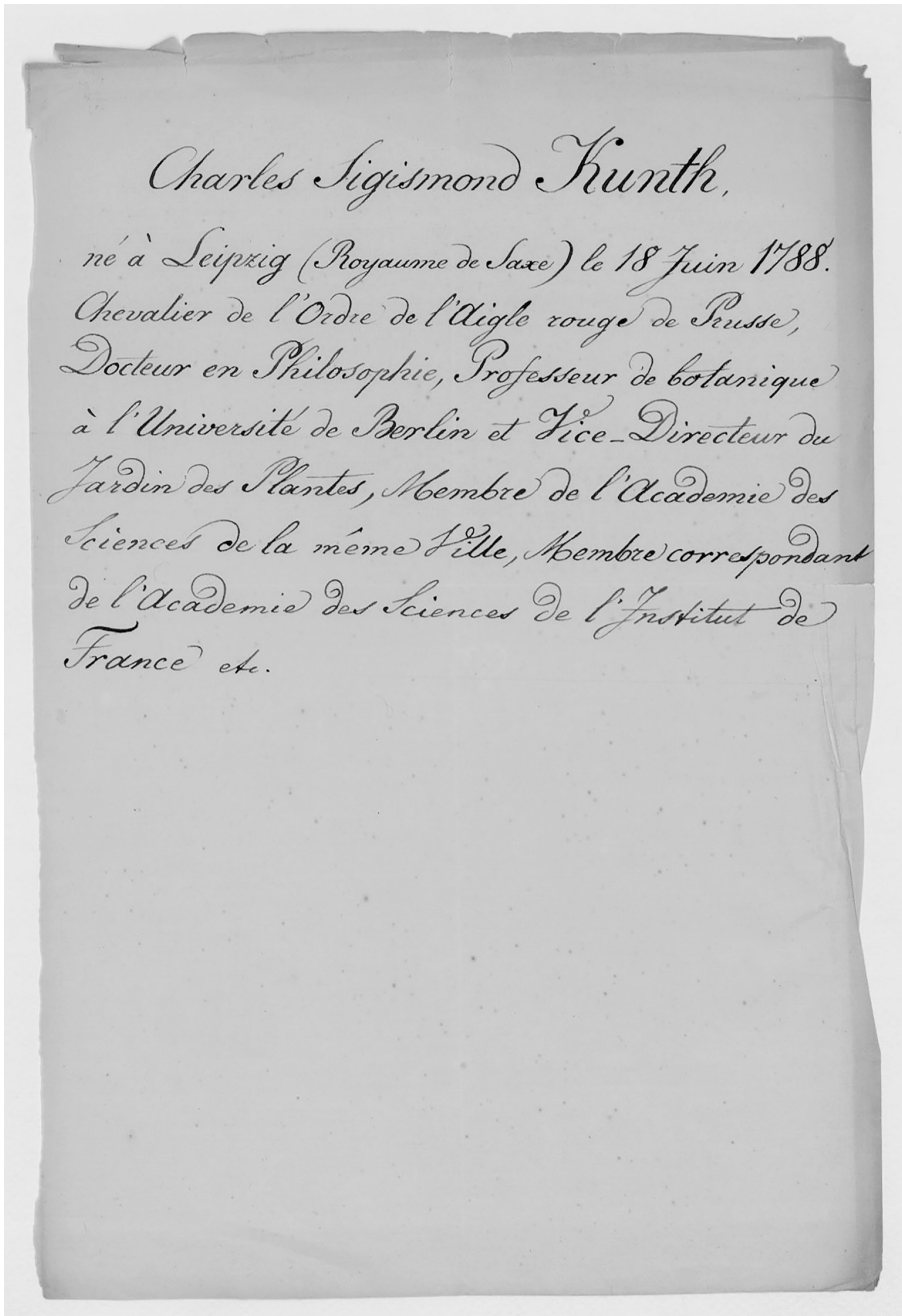 Charles Sigismond Kunth,
né à Leipzig (Royaume de Saxe) le 18 Juin 1788.
Chevalier de l'Ordre de l'Aigle rouge de Prusse,
Docteur en Philosophie, Professeur de botanique
à l'Université de Berlin et Vice-Directeur du
Jardin des Plantes, Membre de l'Academie des
Sciences de la même Ville, Membre correspondant
de l'Academie des Sciences de l'Institut de
France etc.